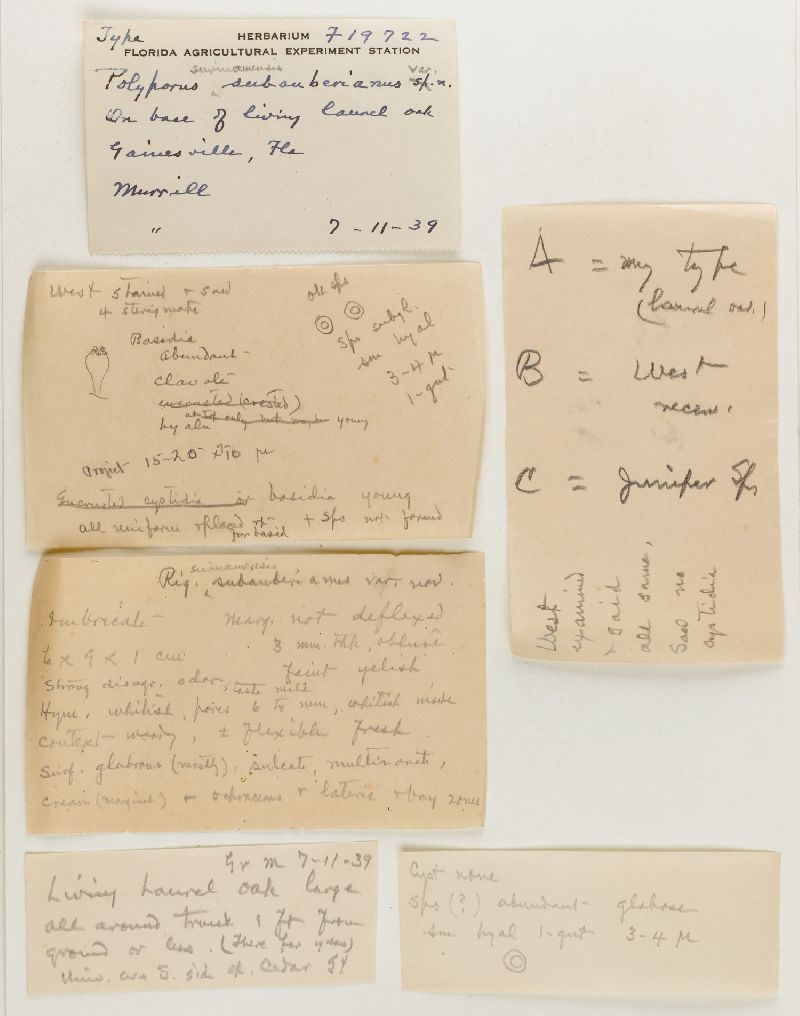 Type HERBARIUM F19722
FLORIDA AGRICULTURAL EXPERIMENT STATION
surinamensis var.
Polyporus subauberianus sp. n.
On base of living laurel oak
Gainesville, Fla
Murrill
" 7-11-39
West stained & saw
4 sterigmata
Basidia
abundant
clavate
encrusted (crested)
at top only but
hyalin young
Project 15-20 x 10 µ
Encrusted cystidia or basidia young
all uniform + sps not formed
for basid
old sps
sps subgl.
sm hyal
3-4 µ
1-gut
A = my type
(laurel oak!)
B = West
recen.
C = Juniper Sps
West
examined
& said
all same,
Saw no
cystidia
surinamensis
Rig. subauberianus var. nov.
Imbricate marg. not deflexed
6 x 9 x 1 cm 3 mm. thk, obtuse
Strong disagr. odor, faint yelish
taste mild
Hym. whitish, pores 6 to mm, whitish inside
context woody, ± flexible fresh
Surf. glabrous (mostly), sulcate, multizonate,
cream (marginal) & ochraceous & lateric & bay zones
G & M 7-11-39
Living Laurel oak large
all around trunk 1 ft from
ground or less. (There for years)
Univ. S. side of Cedar
Cyst none
Sps (?) abundant globose
sm hyal 1-gut 3-4 µ